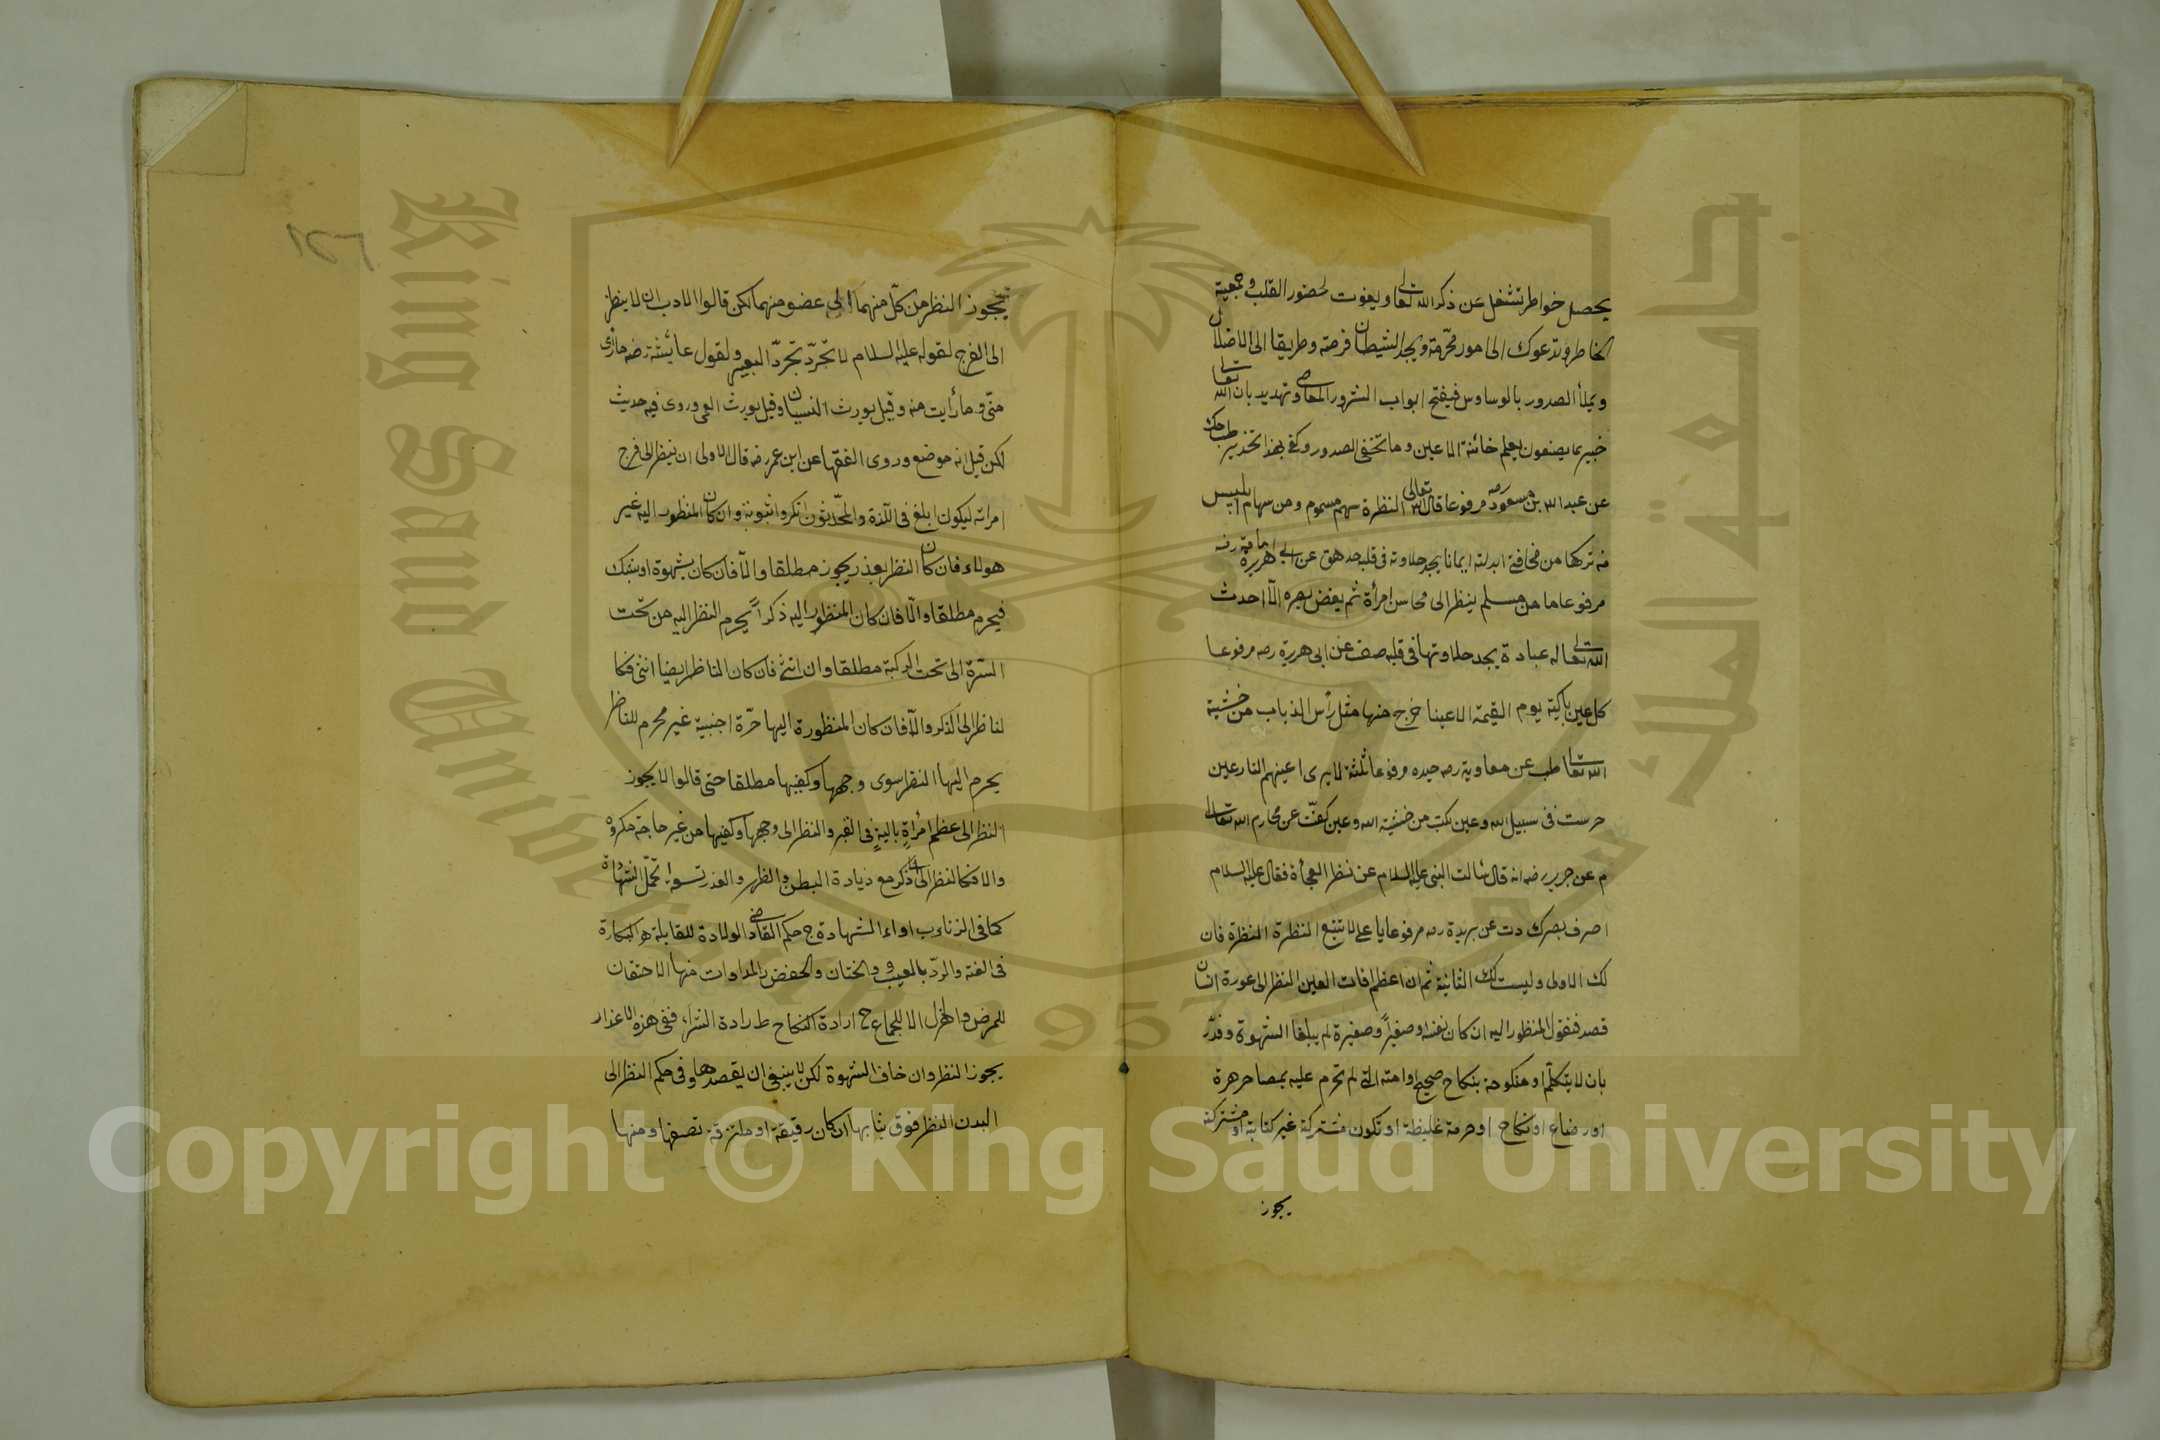 يحصل خواطر تشغل عن ذكر الله تعالى ويفوت لحضور القلب وجمعية
الخاطر وتدعوك الى امور محرمة ويجد الشيطان فرصة وطريقا الى الاضلال
ويملأ الصدور بالوساوس فيفتح ابواب الشرور المعاصى وتهديد بان الله تعالى
خبير بما يصنعون يعلم خائنة الاعين وما تخفى الصدور وكفى بهذا تحذير طب حك
عن عبد الله بن مسعود رضه مرفوعا قال الله تعالى النظرة سهم مسموم ومن سهام ابليس
من تركها من مخافتى ابدلته ايمانا يجد حلاوته فى قلبه حد هق عن ابى امامة رضه
مرفوعا ما من مسلم ينظر الى محاسن امرأة ثم يغض بصره الّا احدث
الله تعالى له عبادة يجد حلاوتها فى قلبه صف عن ابى هريرة رضه مرفوعا
كل عين باكية يوم القيمة الا عينا خرج منها مثل رأس الذباب من خشية
الله تعالى طب عن معاوية رضه حيده مرفوعا ثلثة لا يرى اعينهم النار عين
حرست فى سبيل الله وعين بكت من خشية الله وعين كفّت عن محارم الله تعالى
م عن جرير رضه انه قال سألت النبى عليه السلام عن نظر الفجأة فقال عليه السلام
اصرف بصرك دت عن بريدة رضه مرفوعا يا على لا تتبع النظرة النظرة فان
لك الاولى وليست لك الثانية ثم ان اعظم افات العين النظر الى عورة انسان
قصدا فنقول المنظور اليه ان كان نفسه او صغيرًا وصغيرة لم يبلغا الشهوة وقدّر
بان لا يتكلّم او منكوحة بنكاح صحيح او امته التى لم تحرم عليه بمصاهرة
او رضاع او نكاح او حرمة غليظة او تكون مشتركة غير كتابة او مشتركة
يجوز
يجوز النظر من كلّ منهما الى عضو منهما لكن قالوا الادب ان لا ينظر
الى الفرج لقوله عليه السلام لا تجرّد تجرّد البعير ولقول عائشة رضه ما رأى
منّى وما رأيت منه وقيل يورث النسيان وقيل يورث العمى وروى فيه حديث
لكن قيل انه موضع وروى الفقها عن ابن عمر رضه قال الاولى ان ينظر الى فرج
امراته ليكون ابلغ فى اللّذة والمحّدثون انكروا ثبوته وان كان المنظور اليه غير
هولاء فان كان النظر بعذر يجوز مطلقا والّا فان كان بشهوة او بشك
فيحرم مطلقا والّا فان كان المنظور اليه ذكراً يحرم النظر اليه من تحت
السّرة الى تحت الركبة مطلقا وان انثى فان كان الناظر ايضا انثى فكا
لناظر الى الذكر والّا فان كان المنظورة اليها حرّة اجنبية غير محرم للناظر
يحرم اليها النظر سوى وجهها وكفيها مطلقا حتى قالوا لا يجوز
النظر الى عظم امرأةٍ باليةٍ فى القبر والنظر الى وجهها وكفيها من غير حاجة مكروه
والا فكالنظر الى ذكر مع زيادة البطن والظهر والعذر تسوا ا تحمّل الشهادة
كما فى الزنا ب اداء الشهادة ج حكم القاضى د الولادة للقابلة ه البكارة
فى العنة والردّ بالعيب و والختان والخفض ز المداوات منها الاحتقان
للمرض والهزل الا للجماع ح ارادة النكاح ط ارادة الشراء ففى هذه الاعذار
يجوز النظر وان خاف الشهوة لكن لا ينبغى ان يقصدها وفى حكم النظر الى
البدن النظر فوق ثيابها ان كان رقيقة او ملتزقة تصفها ومنها
King Saud University
جامعة الملك سعود
1957
Copyright © King Saud University